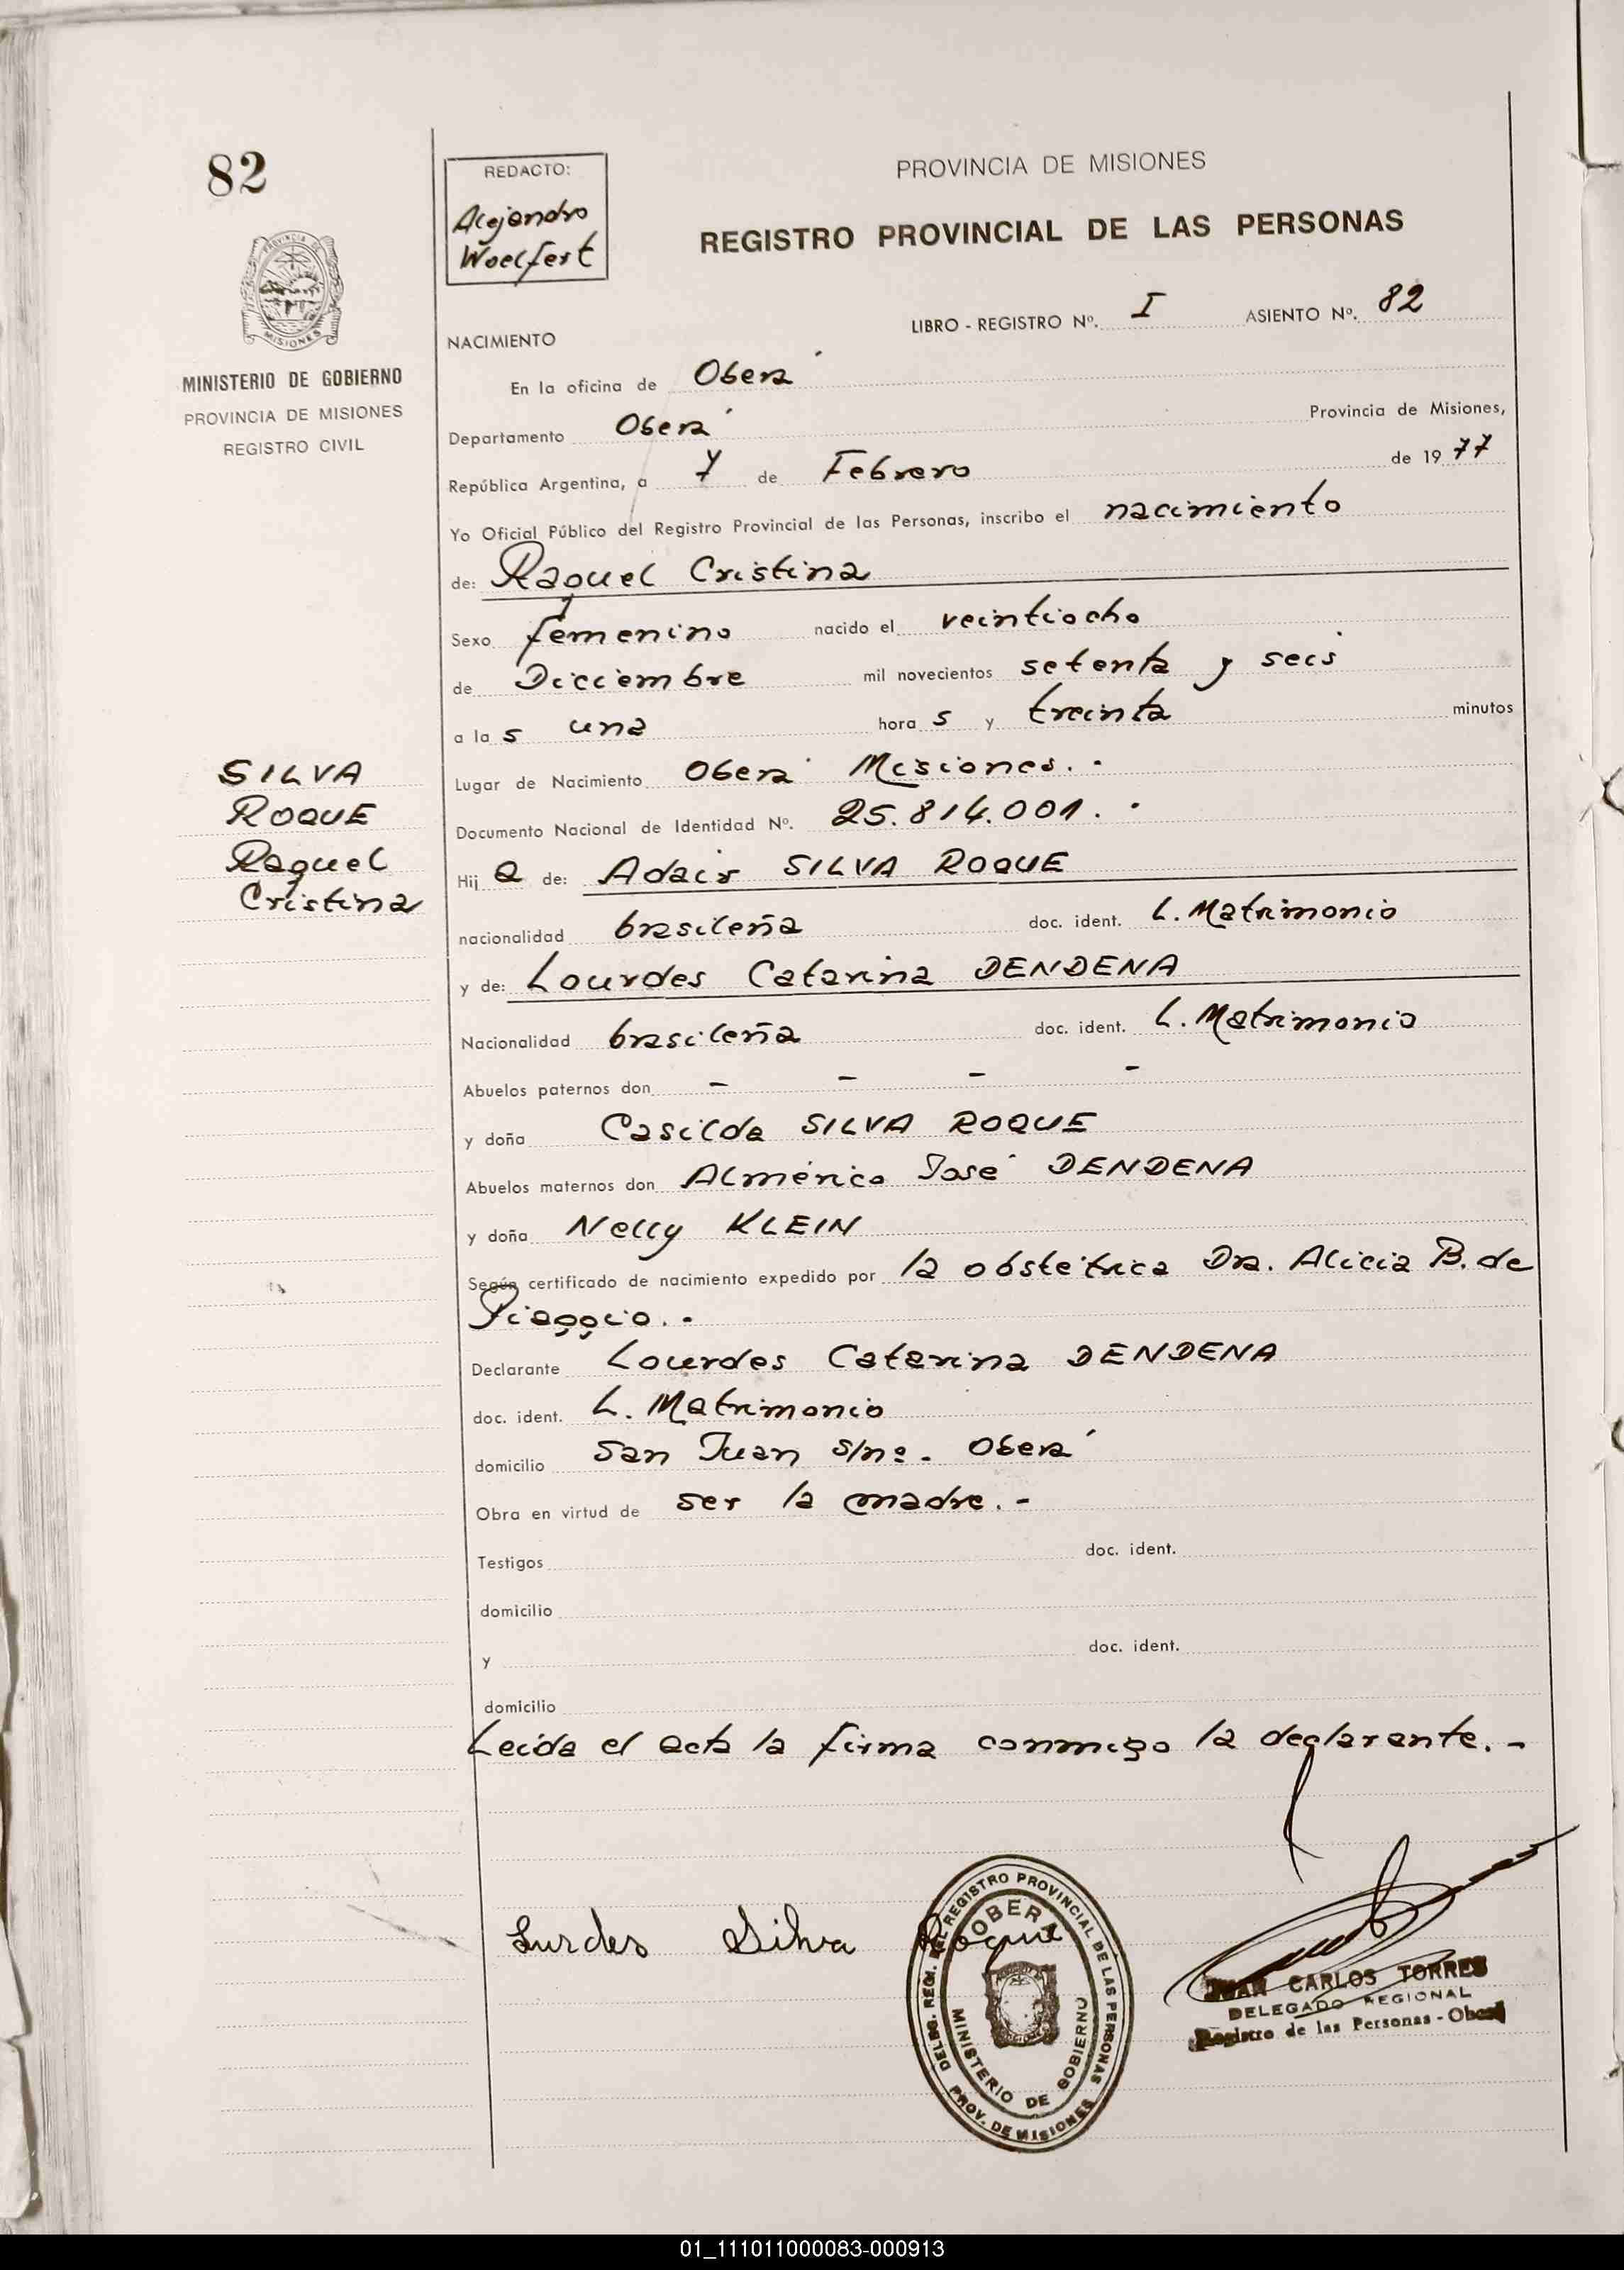 82
REDACTO:
Alejandro
Woelfert
PROVINCIA DE MISIONES
REGISTRO PROVINCIAL DE LAS PERSONAS
PROVINCIA DE
MISIONES
MINISTERIO DE GOBIERNO
PROVINCIA DE MISIONES
REGISTRO CIVIL
LIBRO - REGISTRO Nº. I ASIENTO Nº. 82
NACIMIENTO
En la oficina de Oberá
Departamento Oberá Provincia de Misiones,
República Argentina, a 7 de Febrero de 1977
Yo Oficial Público del Registro Provincial de las Personas, inscribo el nacimiento
de: Raquel Cristina
Sexo femenino nacido el veintiocho
de Diciembre mil novecientos setenta y seis
a las una horas y treinta minutos
Lugar de Nacimiento Oberá Misiones.-
Documento Nacional de Identidad Nº. 25.814.001.-
SILVA
ROQUE
Raquel
Cristina
Hija de: Adair SILVA ROQUE
nacionalidad brasileña doc. ident. L. Matrimonio
y de: Lourdes Catarina DENDENA
Nacionalidad brasileña doc. ident. L. Matrimonio
Abuelos paternos don - - - -
y doña Casilda SILVA ROQUE
Abuelos maternos don Almérico José DENDENA
y doña Nelly KLEIN
Según certificado de nacimiento expedido por la obstétrica Dra. Alicia B. de
Piaggio.-
Declarante Lourdes Catarina DENDENA
doc. ident. L. Matrimonio
domicilio San Juan s/nº. Oberá
Obra en virtud de ser la madre.-
Testigos doc. ident.
domicilio
y doc. ident.
domicilio
Leida el acta la firma conmigo la declarante.-
Lurdes Silva Roque
DELEG. REGI. DEL REGISTRO PROVINCIAL DE LAS PERSONAS
OBERA
MINISTERIO DE GOBIERNO
PROV. DE MISIONES
JUAN CARLOS TORRES
DELEGADO REGIONAL
Registro de las Personas - Oberá
01_111011000083-000913